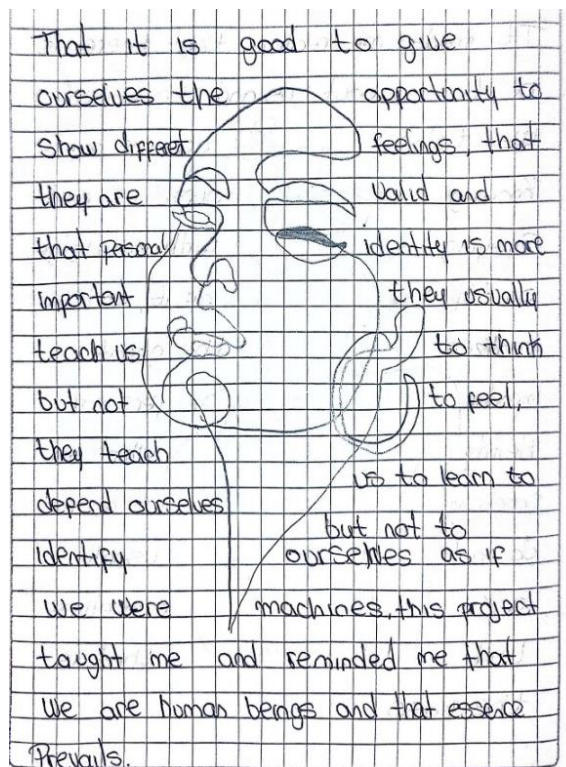 That it is good to give
ourselves the opportunity to
show differet feelings, that
they are valid and
that personal identity is more
important they usually
teach us to think
but not to feel,
they teach us to learn to
defend ourselves but not to
identify ourselves as if
we were machines, this project
taught me and reminded me that
we are human beings and that essence
Prevails.